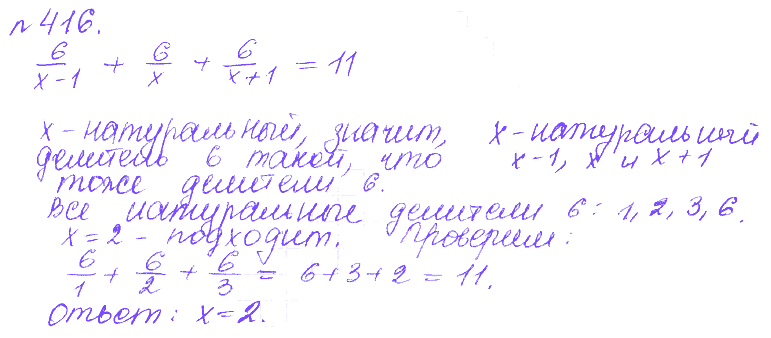 № 416.
6/(x-1) + 6/x + 6/(x+1) = 11
x - натуральный, значит, x - натуральный
делитель 6 такой, что x-1, x и x+1
тоже делители 6.
Все натуральные делители 6: 1, 2, 3, 6.
x = 2 - подходит. Проверим:
6/1 + 6/2 + 6/3 = 6+3+2 = 11.
Ответ: x = 2.